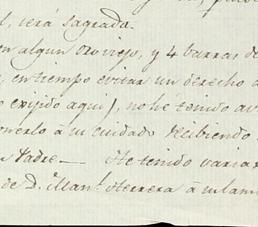 será sagrada.
en algun oro viejo, y 4 barras de
en tiempo evitar un derecho
exijido aqui), no he tenido
onerlo à su cuidado recibiendo
Padre — He tenido varias
de D. Man.l Herrera à